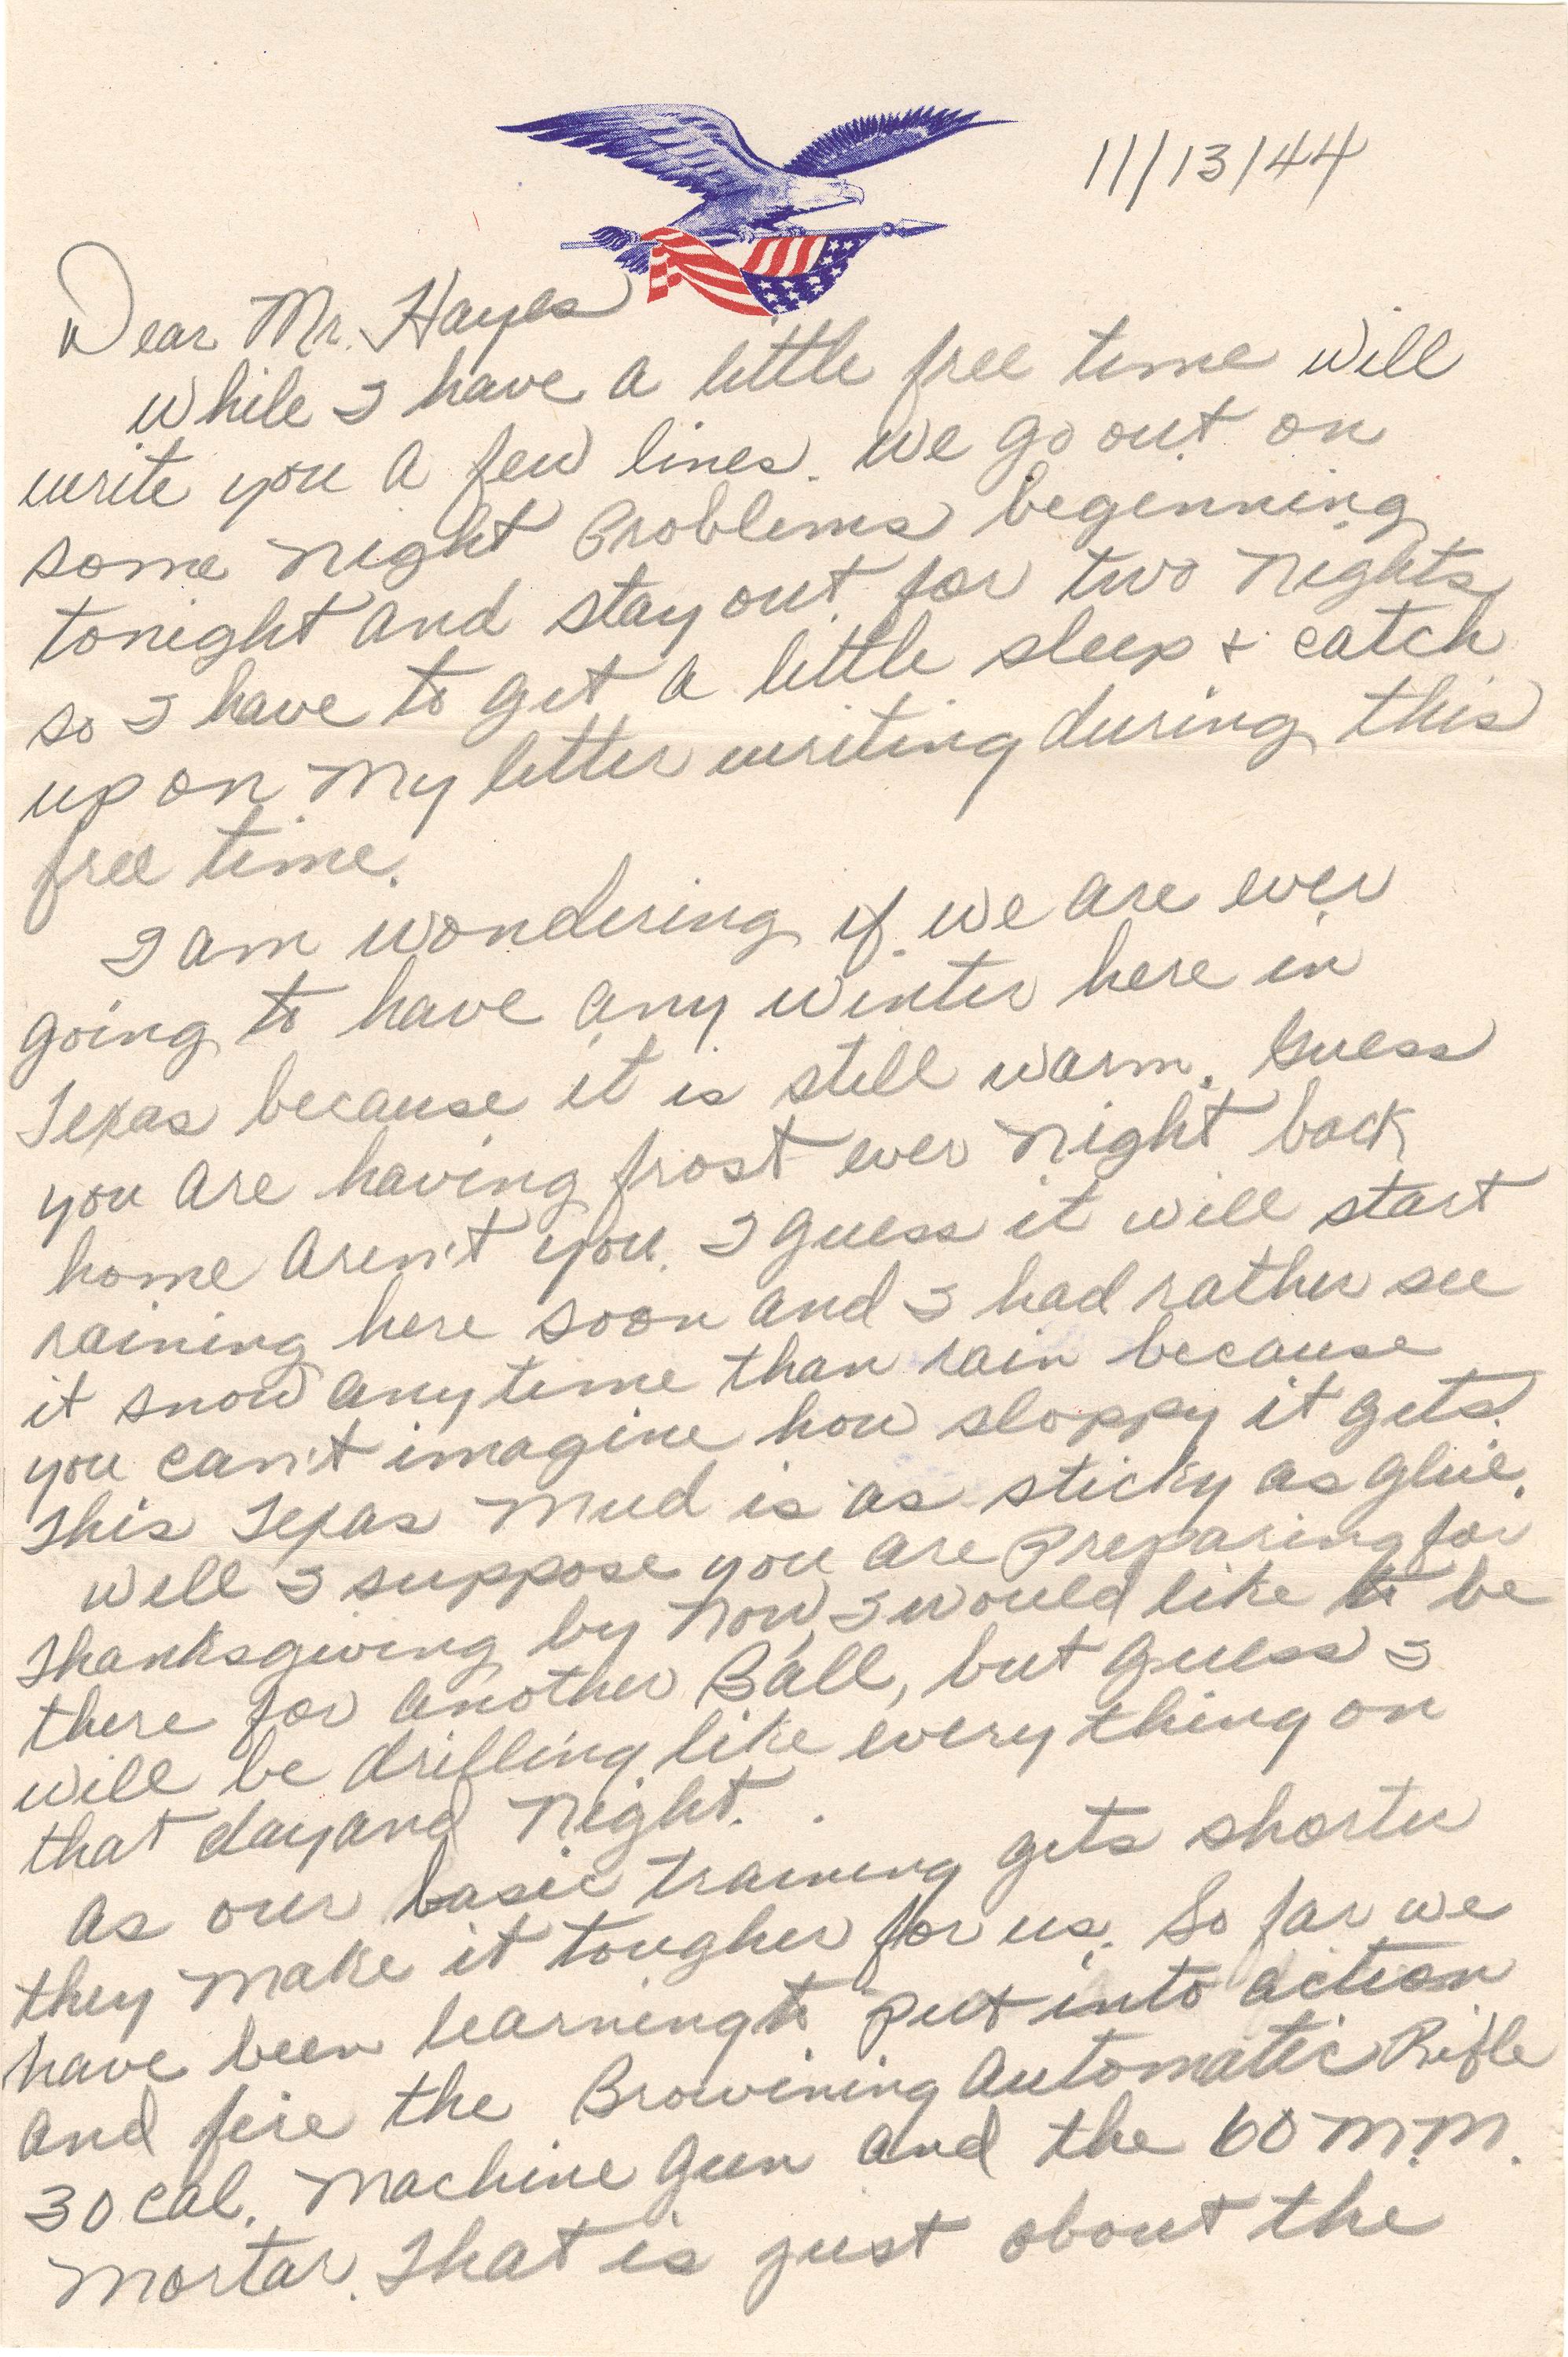 11/13/44
Dear Mr. Hayes
While I have a little free time will
write you a few lines. We go out on
some night Problems beginning
tonight and stay out for two nights
so I have to get a little sleep & catch
up on my letter writing during this
free time.
I am wondering if we are ever
going to have any winter here in
Texas because it is still warm. Guess
you are having frost ever night back
home aren't you. I guess it will start
raining here soon and I had rather see
it snow anytime than rain because
you can't imagine how sloppy it gets.
This Texas mud is as sticky as glue.
Well I suppose you are preparing for
Thanksgiving by now, I would like to be
there for another Ball, but guess I
will be drilling like everything on
that day and night.
As our basic training gets shorter
they make it tougher for us. So far we
have been learning to put into action
and fire the Browining Automatic Rifle
30 cal. Machine Gun and the 60 M.M.
Mortar. That is just about the